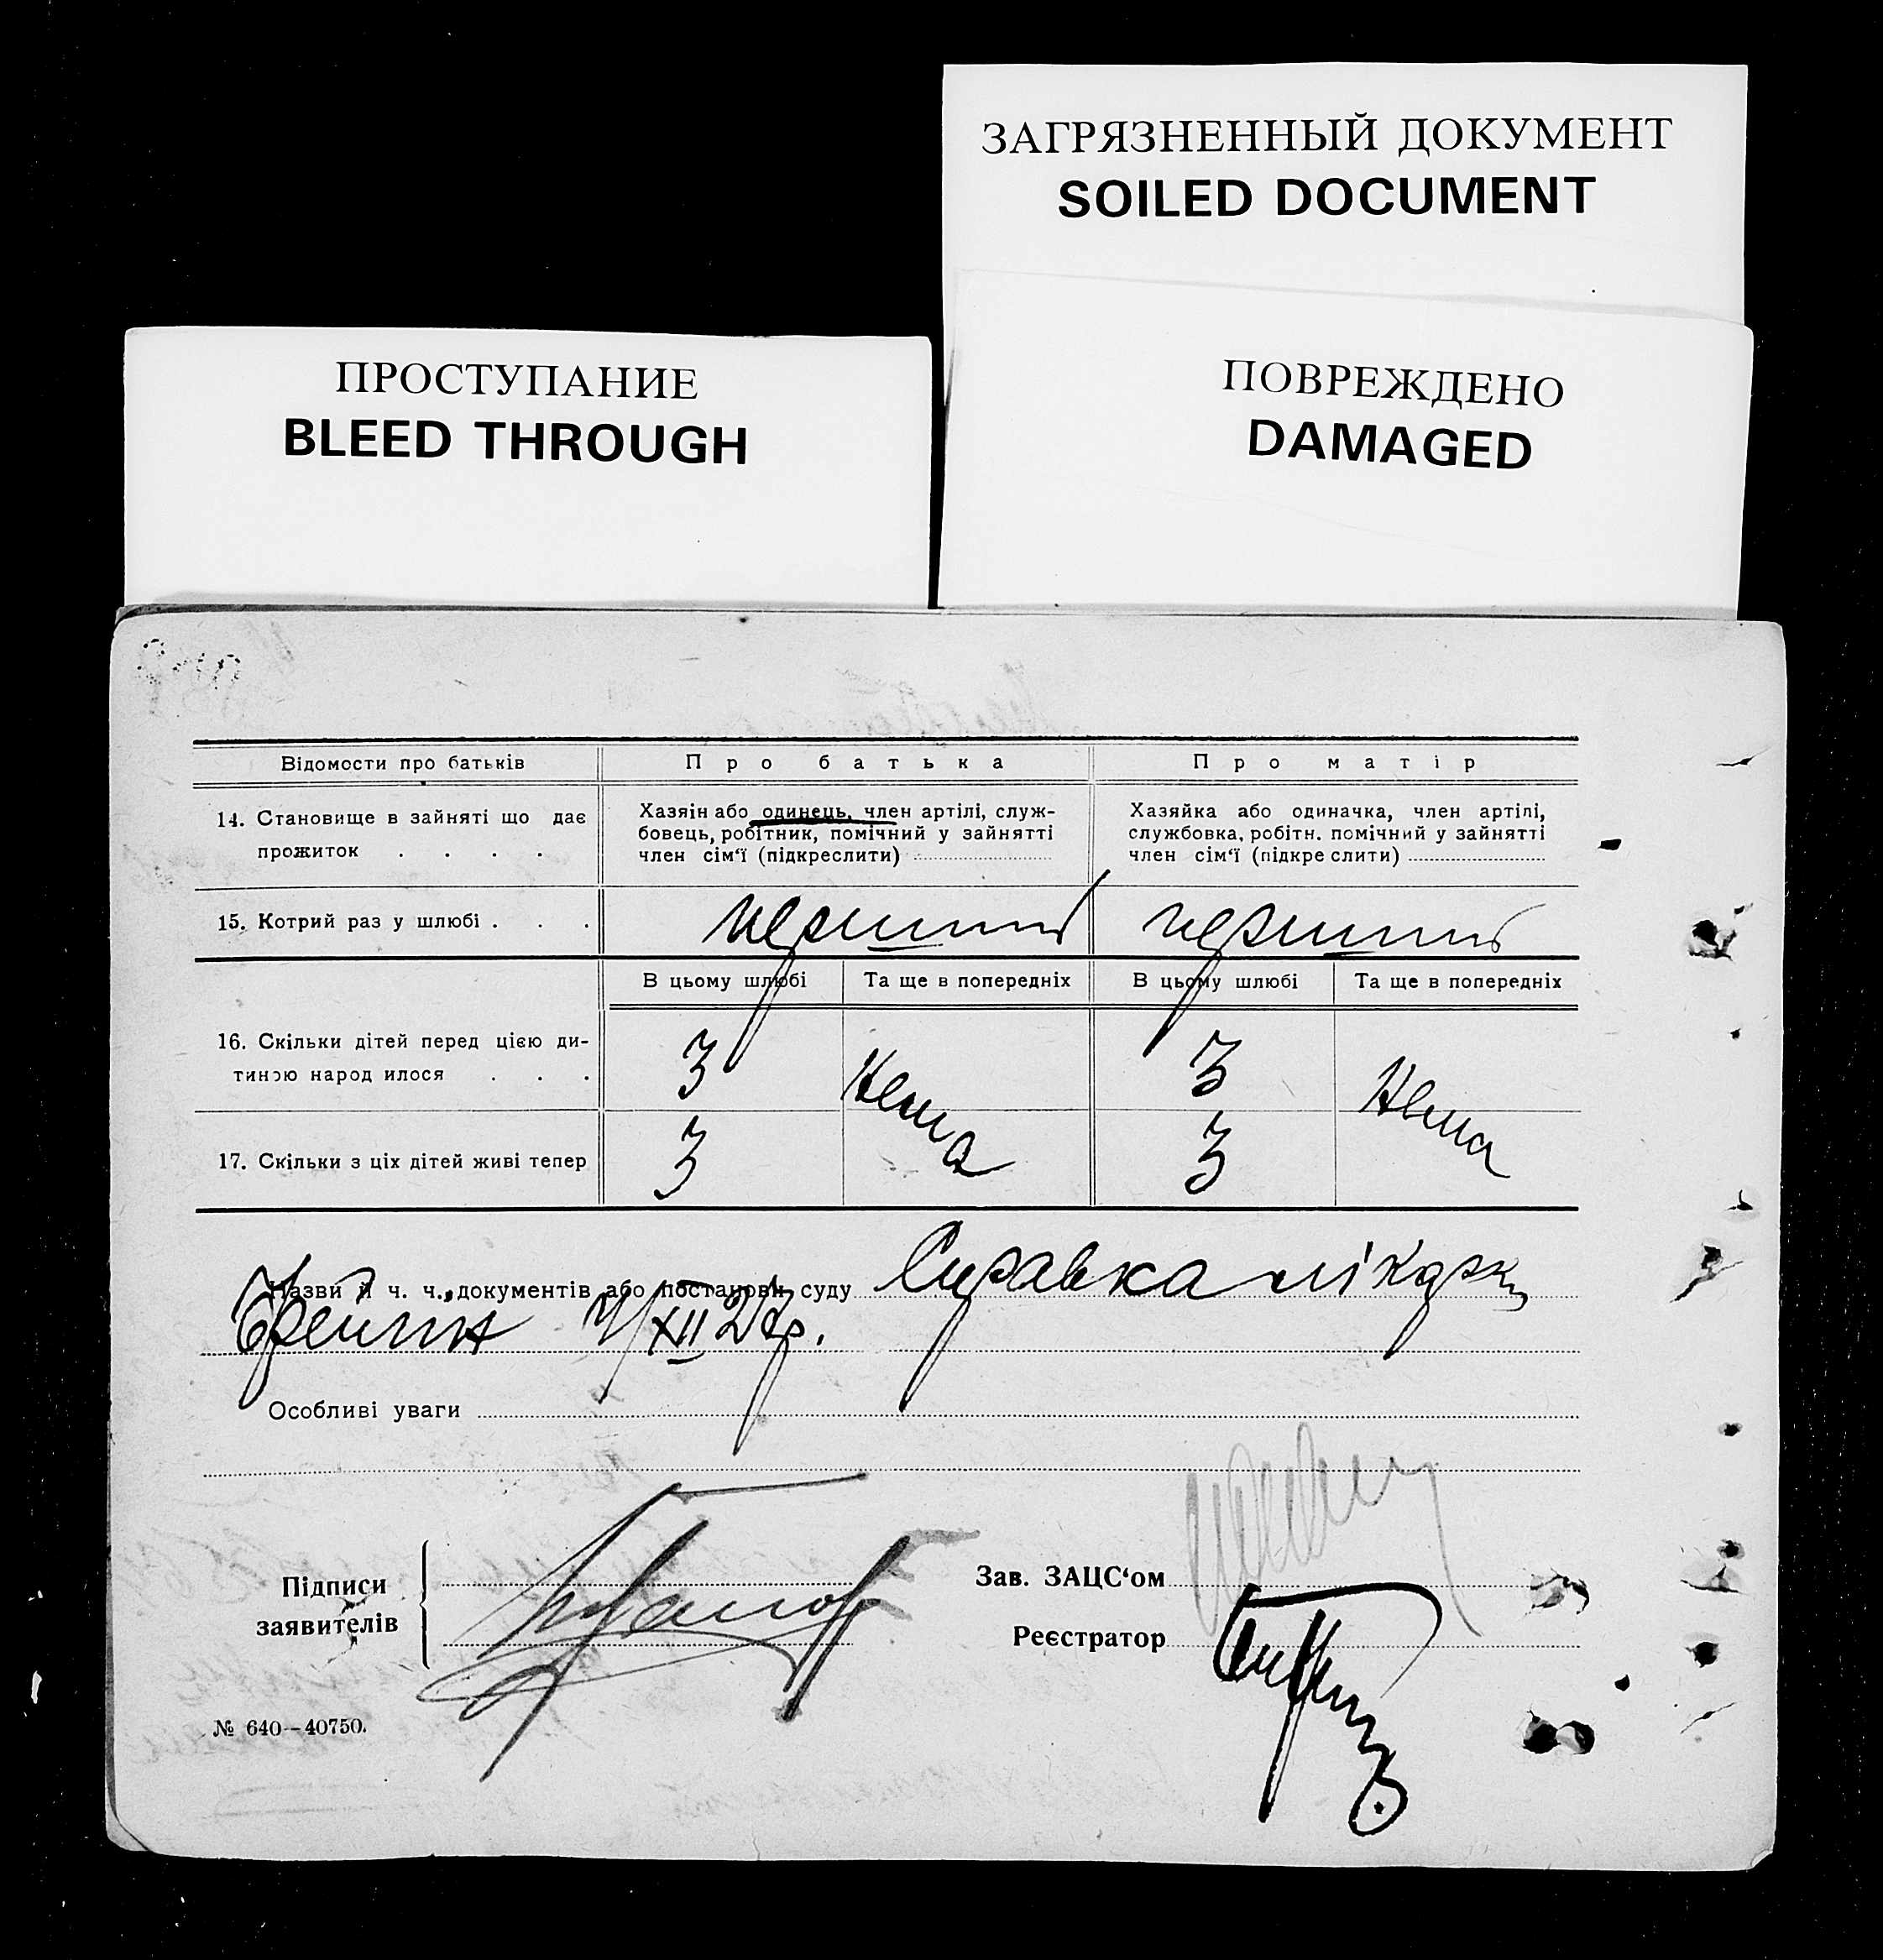 ЗАГРЯЗНЕННЫЙ ДОКУМЕНТ
SOILED DOCUMENT
ПРОСТУПАНИЕ
BLEED THROUGH
ПОВРЕЖДЕНО
DAMAGED
Відомости про батьків
Про батька
Про матір
14. Становище в зайняті що дає
прожиток . . . .
Хазяін або одинець, член артілі, служ-
бовець, робітник, помічний у зайнятті
член сім‘ї (підкреслити)
Хазяйка або одиначка, член артілі,
службовка, робітн. помічний у зайнятті
член сім‘ї (підкре слити)
15. Котрий раз у шлюбі . . .
перший
перший
В цьому шлюбі
Та ще в попередніх
В цьому шлюбі
Та ще в попередніх
16. Скільки дітей перед цією ди-
тиною народ илося . . .
3
Нема
3
Нема
17. Скільки з ціх дітей живі тепер
3
3
Назви й ч. ч. документів або постанови суду Справка лікарки
XII 27р.
Особливі уваги
Підписи
заявителів
Зав. ЗАЦС‘ом
Реєстратор
№ 640—40750.